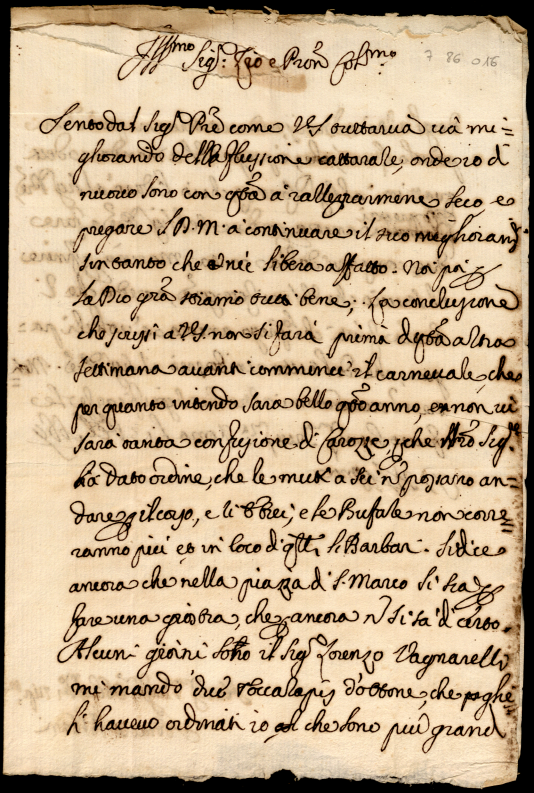 Ill.mo Sig.r Zio e Pron Col.mo
7 86 016
Sento dal Sig.r Prē come VS tuttavia và mi=
gliorando della flussione cattarale, onde io di
nuovo sono con q.ta à rallegrarmene seco, e
pregare S.D.M. à continuare il suo miglioram.to
sin tanto che ne è libera affatto. Noi p
la Dio grā stiamo tutti bene, La conclusione
che scrissi a VS. non si farà prima di q.ta altra
settimana avanti comminci il carnevale, che
per quanto intendo sarà bello q.to anno, e non vi
sarà tanta confusione di carozze, che N.ro Sig.re
hà dato ordine, che le mute a sei n possano an=
dare p il corso, e li Ebrei, e le Bufale non corre
ranno più et in loco di q.ti li Barbari. Si dice
ancora che nella piazza di S. Marco si stà p
fare una giostra, che ancora n si sà di certo.
Alcuni giorni sono il Sig.r Lorenzo Vagnarelli
mi mandò due toccalapis d'ottone, che
li havevo ordinati io che sono più grandi